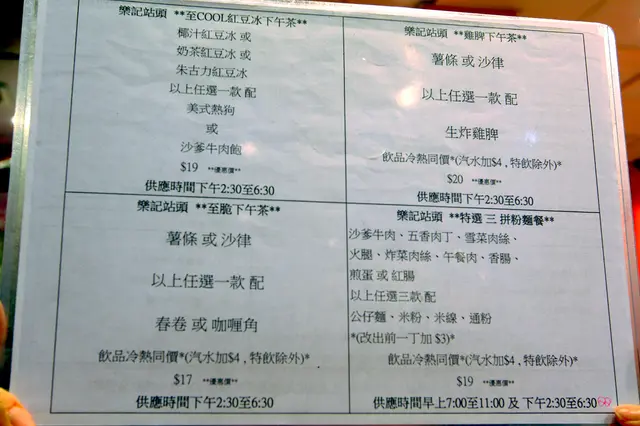 樂記站頭 **至COOL紅豆冰下午茶**
椰汁紅豆冰 或
奶茶紅豆冰 或
朱古力紅豆冰
以上任選一款 配
美式熱狗
或
沙爹牛肉飽
$19 **優惠價**
供應時間下午2:30至6:30
樂記站頭 **雞脾下午茶**
薯條 或 沙律
以上任選一款 配
生炸雞脾
飲品冷熱同價*(汽水加$4, 特飲除外)*
$20 **優惠價**
供應時間下午2:30至6:30
樂記站頭 **至脆下午茶**
薯條 或 沙律
以上任選一款 配
春卷 或 咖喱角
飲品冷熱同價*(汽水加$4, 特飲除外)*
$17 **優惠價**
供應時間下午2:30至6:30
樂記站頭 *特選 三 拼粉麵餐**
沙爹牛肉、五香肉丁、雪菜肉絲、
火腿、炸菜肉絲、午餐肉、香腸、
煎蛋 或 紅腸
以上任選三款 配
公仔麵、米粉、米線、通粉
*(改出前一丁加 $3)*
飲品冷熱同價*(汽水加$4, 特飲除外)*
$19 **優惠價**
供應時間早上7:00至11:00 及 下午2:30至6:30